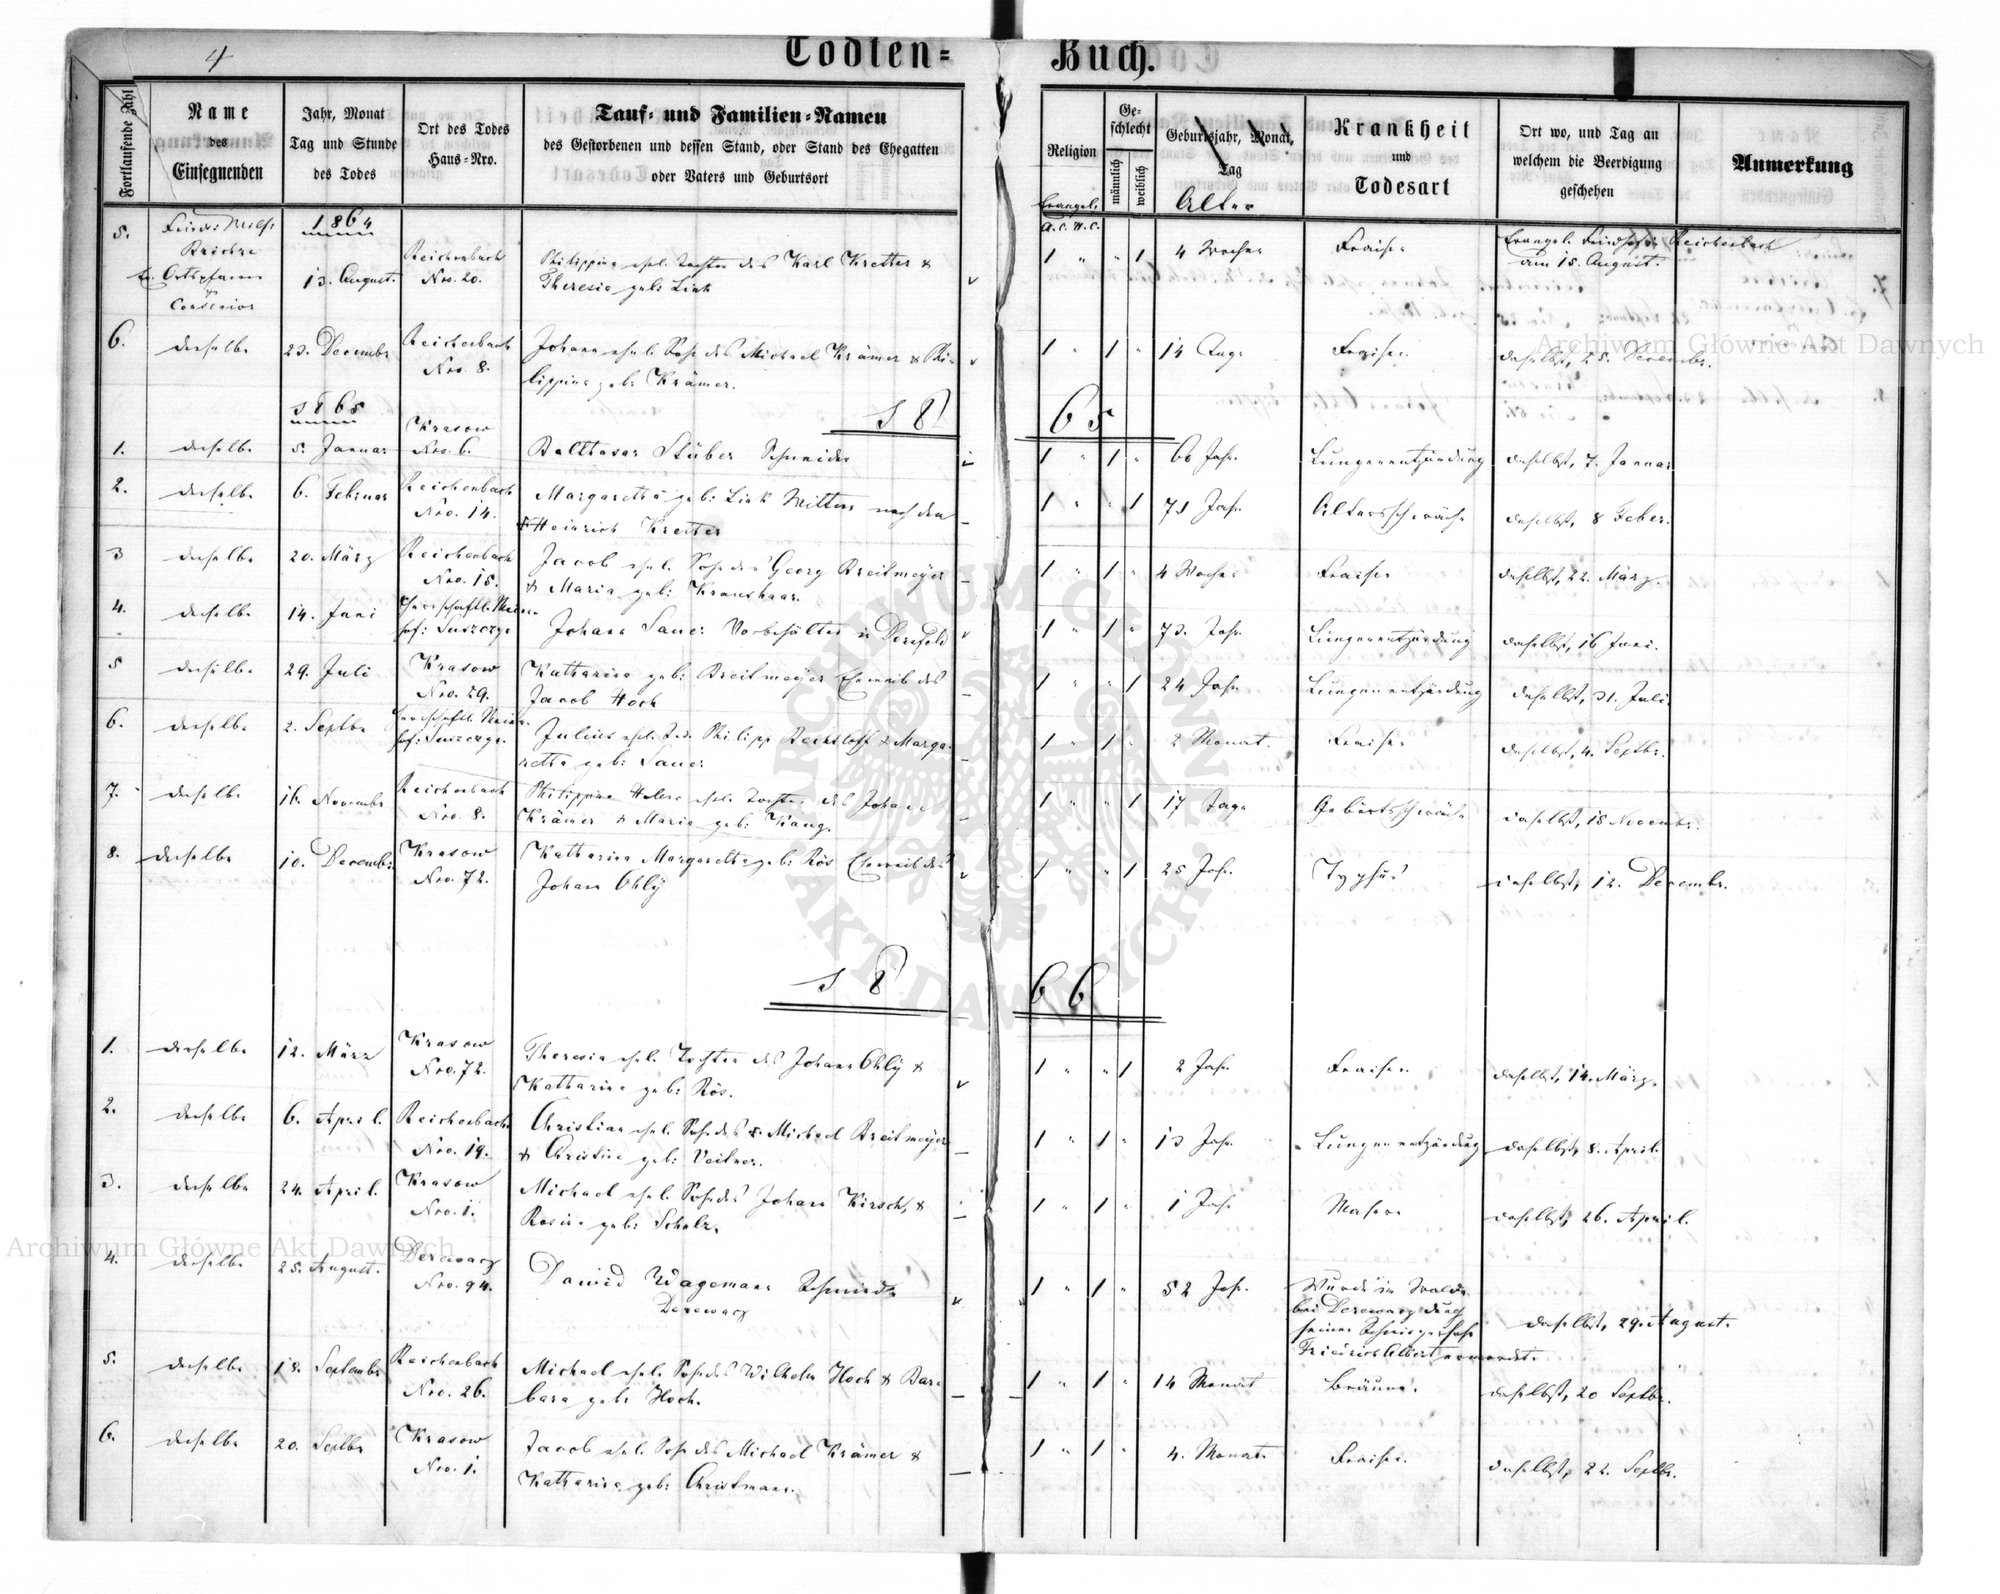 4
Todten- Buch.
Fortlaufende Zahl
Name des Einsegnenden
Jahr, Monat Tag und Stunde des Todes
Ort des Todes Haus-Nro.
Tauf- und Familien-Namen
des Gestorbenen und dessen Stand, oder Stand des Ehegatten
oder Vaters und Geburtsort
Religion
Geschlecht
männlich
weiblich
Geburtsjahr, Monat, Tag
Alter
Krankheit und Todesart
Ort wo, und Tag an welchem die Beerdigung geschehen
Anmerkung
Evangel. A. C. H. C.
1864
5. 13. August. Reichenbach Nro. 20. Philippina ehel. Tochter des Karl Kretter &
Theresia geb: Link
1 " " 1 4 Wochen Fraisen Evangel. Friedhofe Reichenbach
am 15. August.
6. derselbe 23. Decembr Reichenbach Nro. 8. Johann ehel. Sohn des Michael Krämer & Phi-
lippina geb: Krämer.
1 " 1 " 14 Tage Fraisen daselbst, 25. Decembr.
1865
1865
1. derselbe 5. Januar Krasow Nro. 6. Balthasar Stüber Schneider
1 " 1 " 66 Jahr. Lungenentzündung daselbst, 7. Januar
2. derselbe 6. Februar Reichenbach Nro. 14. Margaretha geb: Link Wittwe nach dem
Heinrich Kreiter
1 " " 1 71 Jahr Altersschwäche daselbst, 8 Feber.
3 derselbe 20. März Reichenbach Nro. 15. Jacob ehel. Sohn des Georg Breitmeyer
& Maria geb: Kraushaar.
1 " 1 " 4 Wochen Fraisen daselbst, 22. März.
4. derselbe 14. Juni Herrschaftl. Maierhof: Johann Sauer
1 " 1 " 73. Jahr Lungenentzündung daselbst, 16 Juni.
5 derselbe 29. Juli Krasow Nro. 29. Katharina geb: Breitmeyer Eheweib des
Jacob Hoch
1 " " 1 24 Jahr Lungenentzündung daselbst, 31. Juli.
6. derselbe 2. Septbr Herrschaftl. Maierhof: Julius ehel. Philipp & Marga-
retha geb: Sauer
1 " 1 " 2 Monat. Fraisen daselbst, 4. Septbr.
7. derselbe 16. Novembr Reichenbach Nro. 8. Philippina Helene ehel. Tochter des Johann
Krämer & Maria geb:
1 " " 1 17 Tage Geburtsschwäche daselbst, 18 Novembr.
8. derselbe 10. Decembr. Krasow Nro. 72. Katharina Margaretha geb: Rös Eheweib des
Johann Ohlÿ
1 " " 1 25 Jahr. Typhus daselbst, 12. Decembr.
1866
1. derselbe 12. März Krasow Nro. 72. Theresia ehel. Tochter des Johann Ohlÿ &
Katharina geb: Rös.
1 " " 1 2 Jahr. Fraisen. daselbst, 14. März.
2. derselbe 6. April. Reichenbach Nro. 19. Christian ehel. Sohn des Michael Breitmeyer
& Christine geb:
1 " 1 " 13 Jahr. Lungenentzündung daselbst, 8. April.
3. derselbe 24. April. Krasow Nro. 1. Michael ehel. Sohn des Johann Kirsch, &
Rosina geb: Scholz.
1 " 1 " 1 Jahr Masern daselbst, 26. April.
4. derselbe 25. August. Derewacz Nro. 94. Dawid Wagemann Schmied
Derewacz
1 " 1 " 52 Jahr. Wurde im Walde
bei Derewacz durch
seinen Schwiegersohn
Friedrich Albert ermordet.
daselbst, 29. August.
5. derselbe 18. Septembr Reichenbach Nro. 26. Michael ehel. Sohn des Wilhelm Hoch & Bar-
bara geb: Hoch.
1 " 1 " 14 Monat Bräune. daselbst, 20 Septbr.
6. derselbe 20. Septbr Krasow Nro. 1. Jacob ehel. Sohn des Michael Krämer &
Katharina geb: Christmann.
1 " 1 " 4. Monate Fraisen. daselbst, 22. Septbr.
Archiwum Główne Akt Dawnych
Archiwum Główne Akt Dawnych
ARCHIWUM GŁÓWNE AKT DAWNYCH